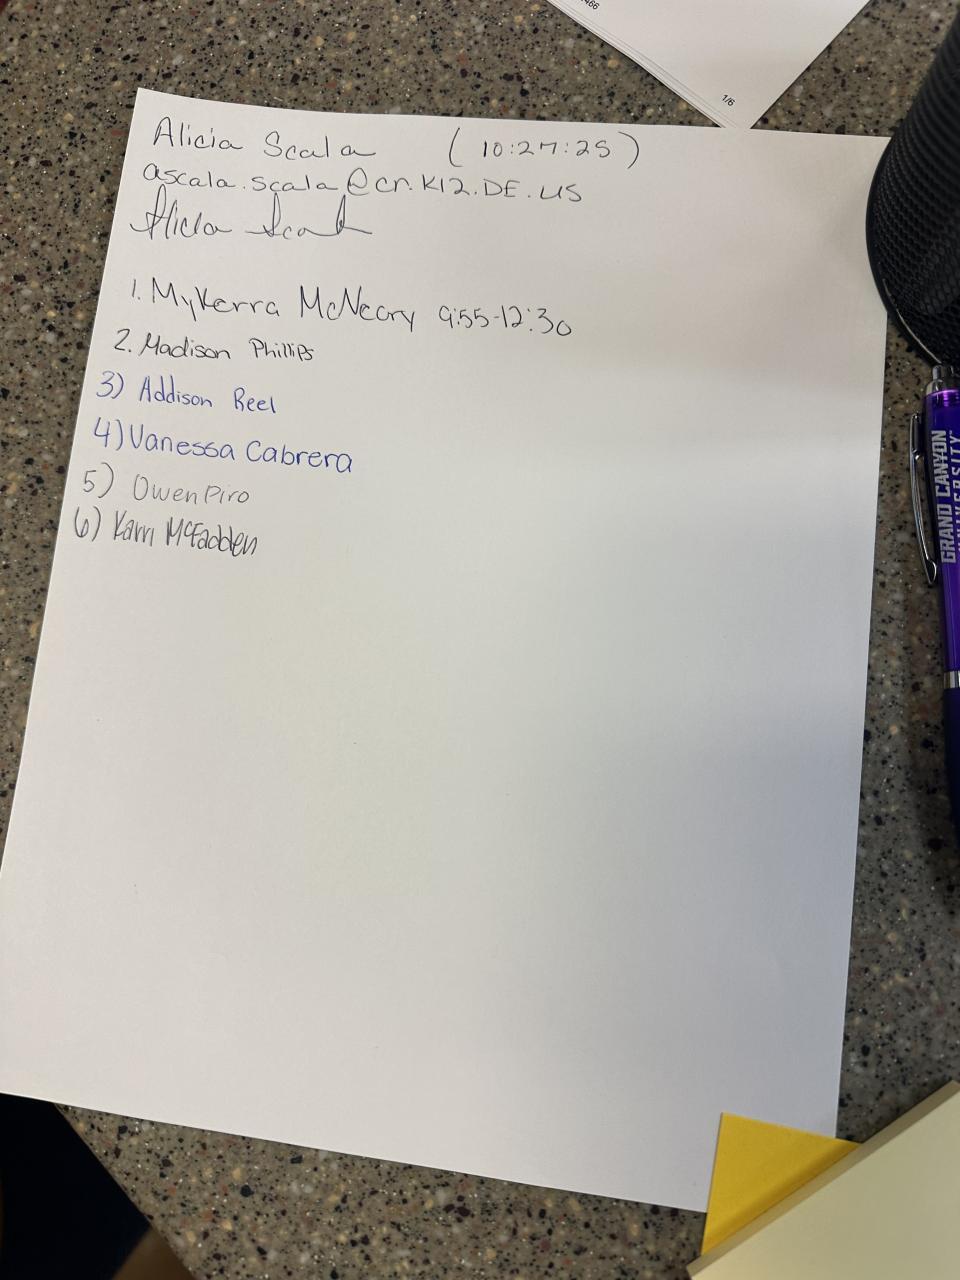 466
1/6
Alicia Scala (10:27:25)
ascala.scala@cn.K12.DE.US
Alicia Scala
1. MyKerra McNeary 9:55-12:30
2. Madison Phillips
3) Addison Reel
4) Vanessa Cabrera
5) Owen Piro
6) Karri McFadden
GRAND CANYON
UNIVERSITY